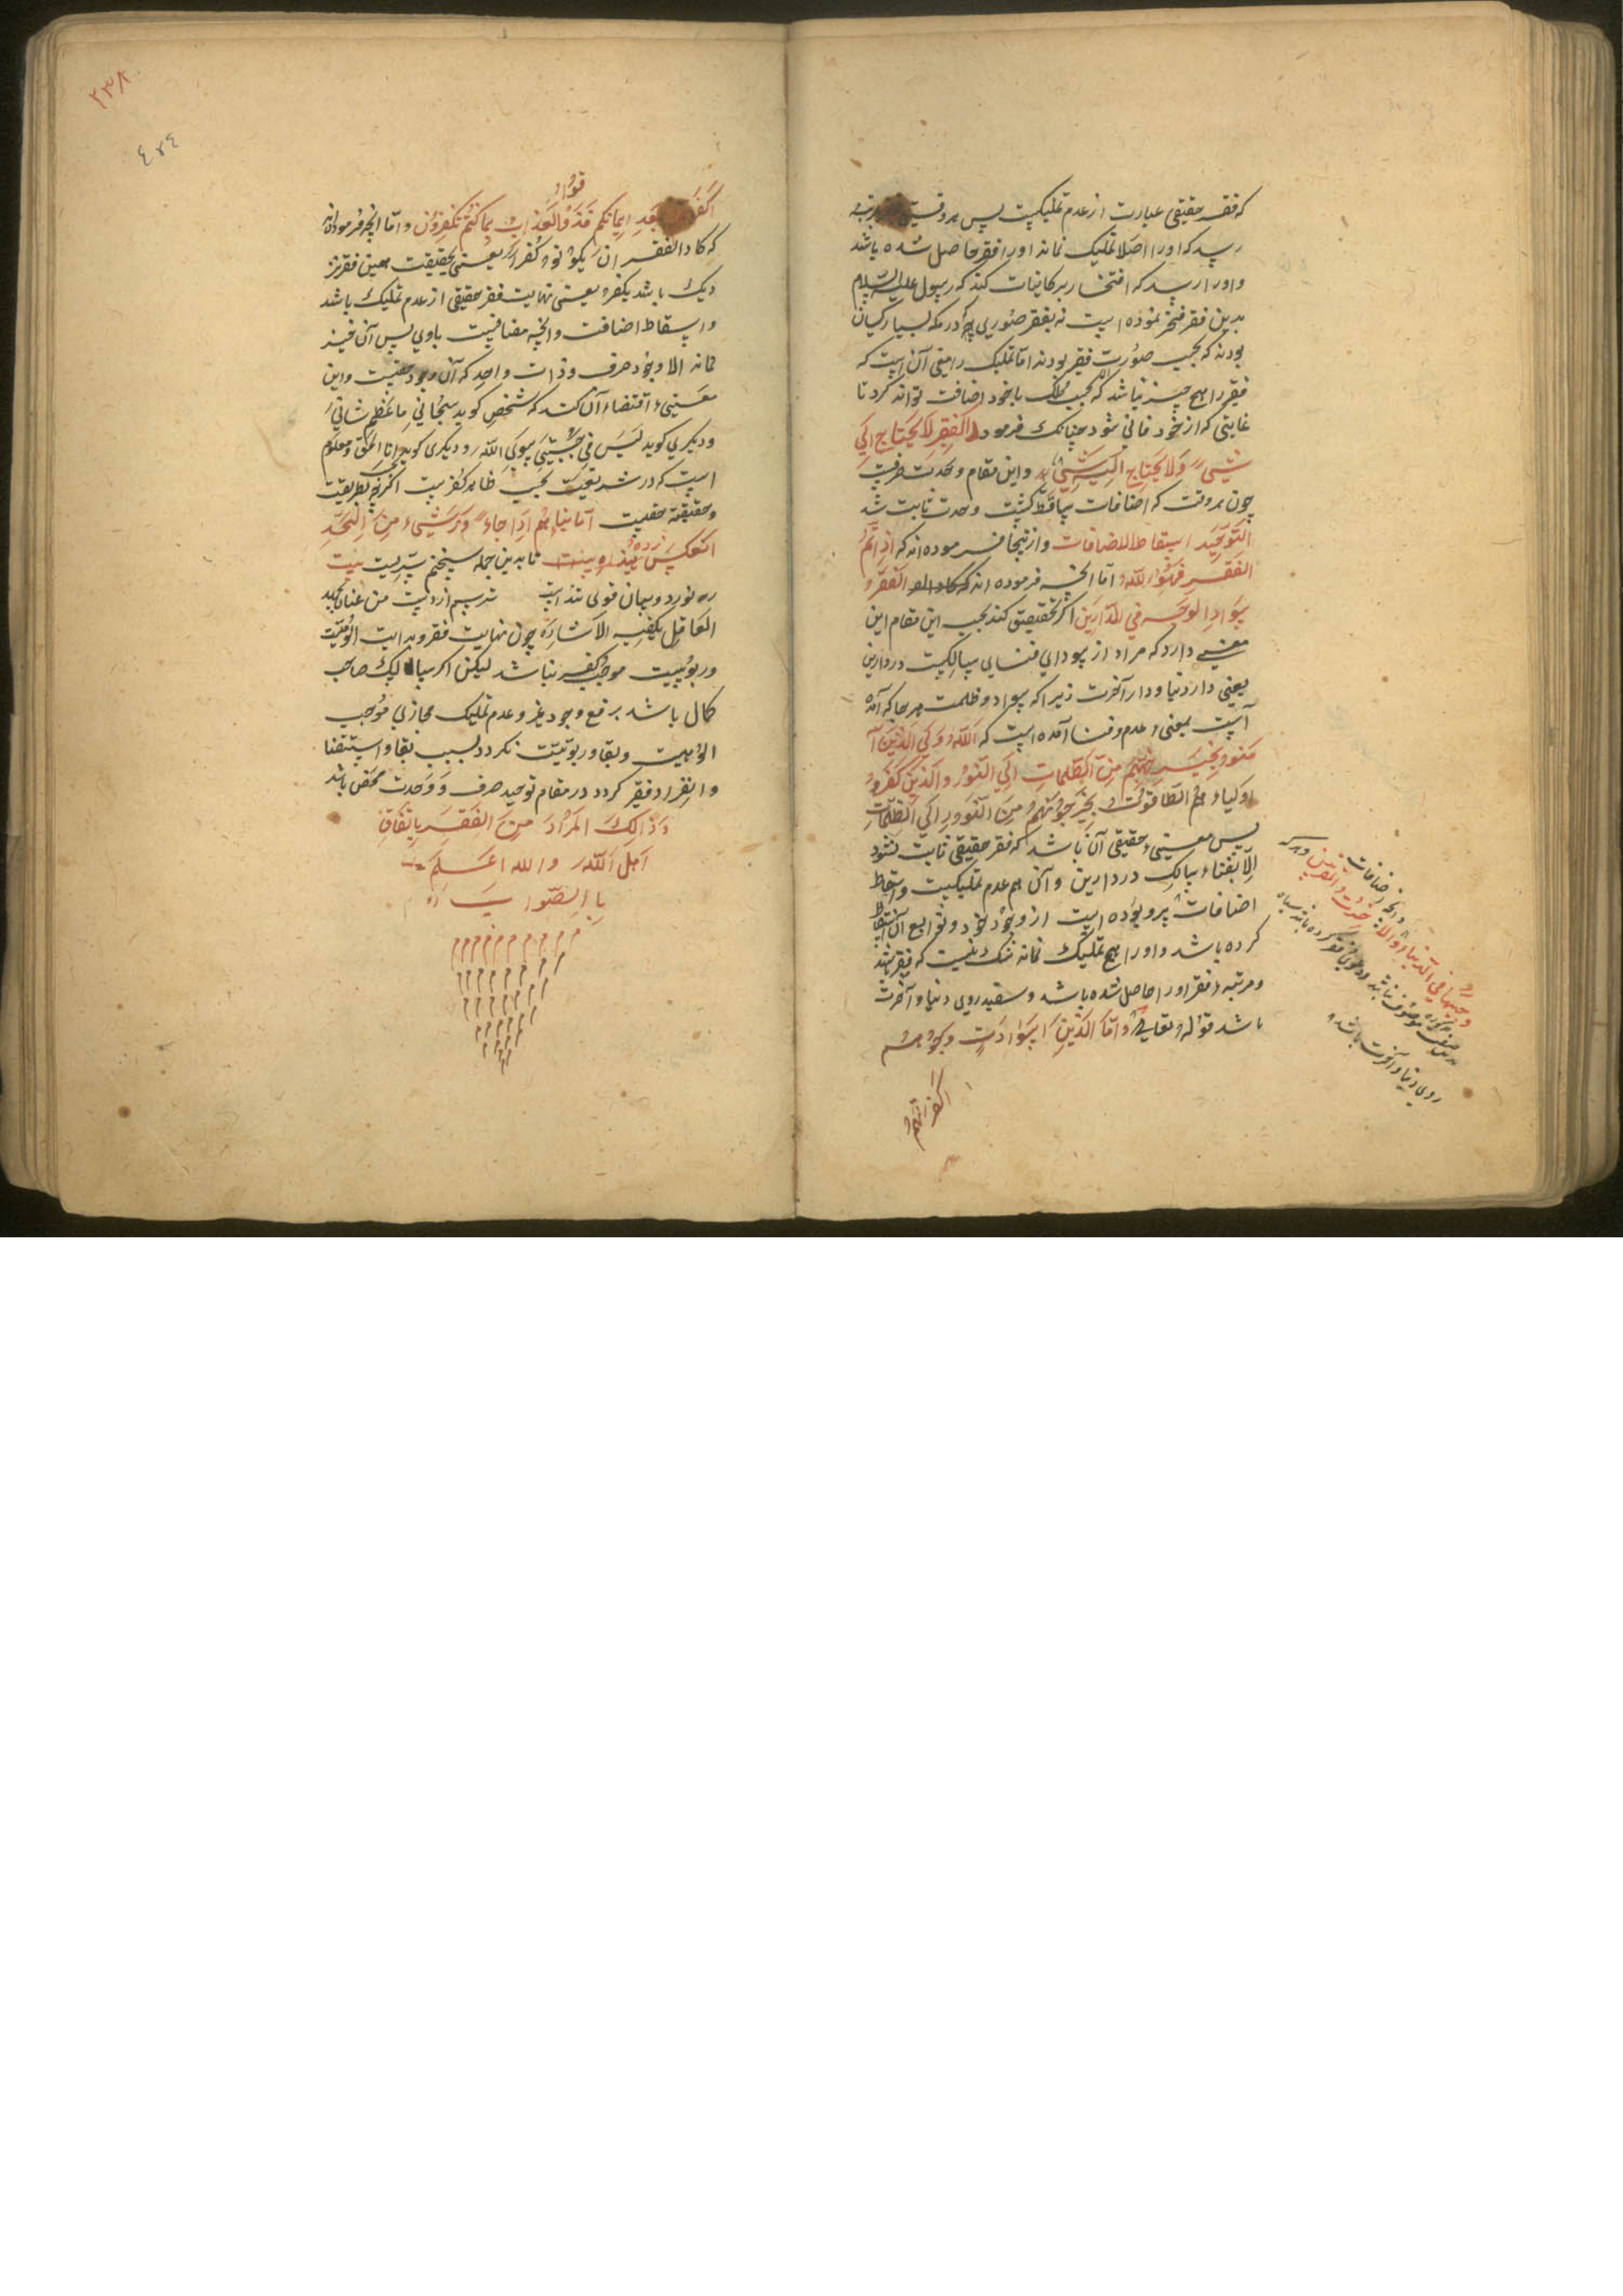 که فقر حقیقی عبارت از عدم تملیکیت پس هر وقتی مرتبه
رسد که او را اصلا تملیک نماند او را فقر حاصل شده باشد
و او را رسد که افتخار بر کاینات کند که رسول علیه السلام
بدین فقر فخر نموده است نه بفقر صوری چه در مکه بسیار کسان
بودند که بحسب صورت فقیر بودند اما تملیک را معنی آن است که
فقیر را هیچ چیز نباشد که بحسب ملک با خود اضافت تواند کرد تا
غایتی که از خود فانی شود چنانک فرمود الفقر لا یحتاج الی
شیء ولا یحتاج الیه شیء و این مقام وحدت صرفست
چون هر وقت که اضافات ساقط گشت وحدت ثابت شد
التوحید اسقاط الاضافات و از ینجا فرموده اند که اذا تم
الفقر فهو الله اما آنچه فرموده اند که کاد الفقر و
سواد الوجه فی الدارین اگر تحقیق کند بحسب این مقام این
معنی دارد که مراد از سودایی فنای سالکست در دارین
یعنی دار دنیا و دار آخرت زیرا که سواد و ظلمت هر جا که آمده
است بمعنی عدم و فنا آمده است که الله ولی الذین آ
منوا یخرجهم من الظلمات الی النور والذین کفروا
اولیاوهم الطاغوت یخرجونهم من النور الی الظلمات
پس معنی حقیقی آن باشد که فقر حقیقی ثابت نشود
الا بفناء سالک در دارین و آن هم عدم تملیکیت و اسقاط
اضافات از وجود خود و توابع آن اسقاط
کرده باشد و او را هیچ تملیک نماند شک نیست که فقیر
و مرتبه فقر او را حاصل شده باشد و سفید روی دنیا و آخرت
باشد قوله تعالی واما الذین اسوادت وجوههم
اکفرتم
وجیها فی الدنیا والاخرت و المقربین و هر که
روی دنیا و آخرت باشد
۲۳۸
قوا
اکفرتم بعد ایمانکم فذوقالعذاب بما کنتم تکفرون و اما آنچه فرموده اند
که کاد الفقر ان یکون کفرا یعنی بحقیقت معین فقر نز
دیک باشد بکفر یعنی نهایت فقر حقیقی از عدم تملیک باشد
و اسقاط اضافت و آنچه مضافست باوی پس آن فقیر
نماند الا وجود صرف و ذات واحد که آن وجود حقست و این
معنی اقتضاء آن کند که شخص گوید سبحانی ما عظم شانی
و دیگری گوید لیس فی جبتی سوی الله و دیگری گوید انا الحق و معلوم
است که در شریعت بحسب ظاهر کفرست اگرچه بحسب طریقت
و حقیقة حقست اما بناء اذا جاوز شیء من الحد
انعکس ضده تا بدین جمله سخنم سپریست بیت
ره نورد و میان قولی تنداست ترسم از دست من عنان بجهد
العاقل یکفیه الاشاره چون نهایت فقر و بدایت الوهیت
و ربوبیت موجب کفر نباشد لیکن اگر سالک صاحب
کمال باشد برفع وجود غیر و عدم تملیک مجازی موجب
الوهیت و بقا و ربوبیت نگردد بسبب بقا و استغنا
و انفراد فقیر گردد در مقام توحید صرف و وحدت محض باشد
وذالک المراد من الفقر باتفاق
اهل الله والله اعلم
بالصواب
م م م م م م م م م م م
م م م م م م م م م
م م م م م م م
م م م م م
م م م